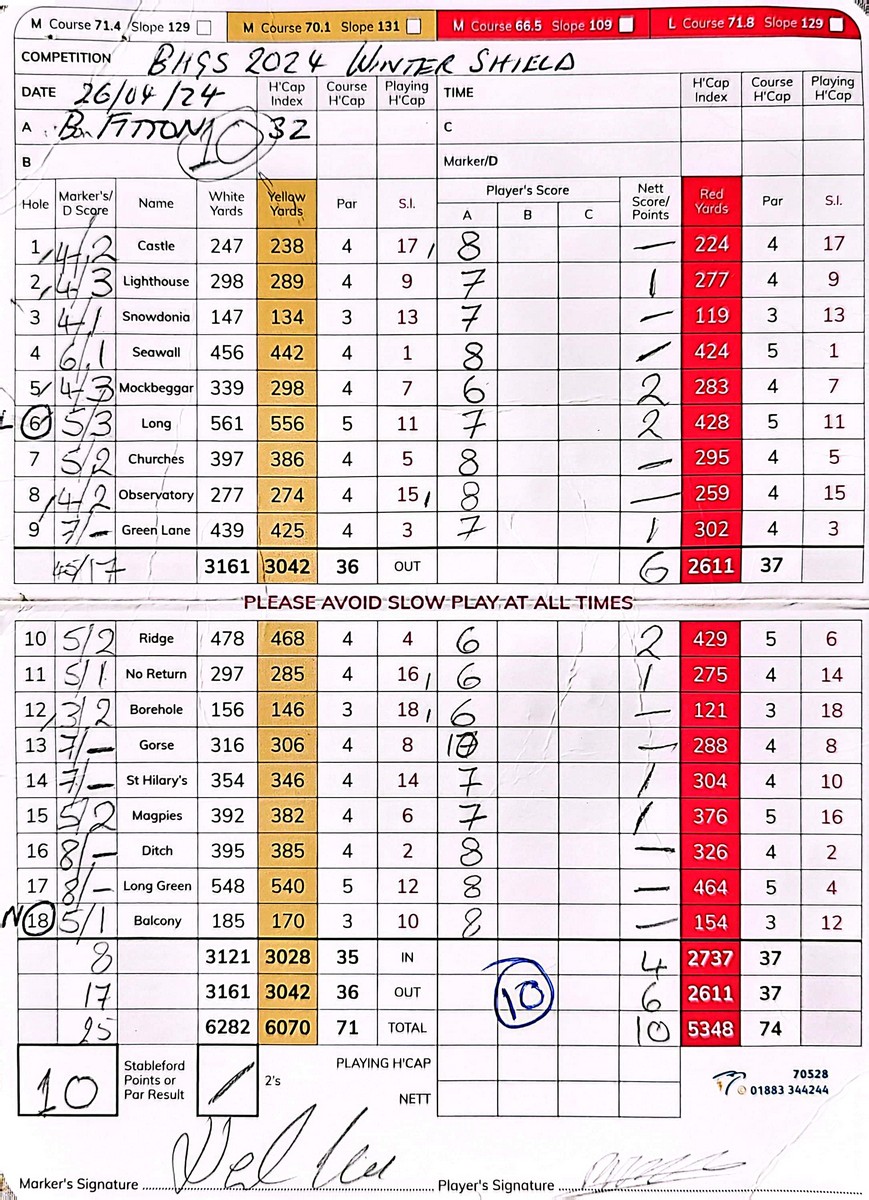 M Course 71.4 Slope 129 M Course 70.1 Slope 131 M Course 66.5 Slope 109 L Course 71.8 Slope 129
COMPETITION BHGS 2024 WINTER SHIELD
DATE 26/04/24 H'Cap Index Course H'Cap Playing H'Cap TIME H'Cap Index Course H'Cap Playing H'Cap
A FITTON 10 32 C
B Marker/D
Hole Marker's/ D Score Name White Yards Yellow Yards Par S.I. Player's Score A B C Nett Score/ Points Red Yards Par S.I.
1 4/2 Castle 247 238 4 17 8 — 224 4 17
2 4/3 Lighthouse 298 289 4 9 7 1 277 4 9
3 4/1 Snowdonia 147 134 3 13 7 — 119 3 13
4 6/1 Seawall 456 442 4 1 8 424 5 1
5 4/3 Mockbeggar 339 298 4 7 6 2 283 4 7
6 5/3 Long 561 556 5 11 7 2 428 5 11
7 5/2 Churches 397 386 4 5 8 — 295 4 5
8 4/2 Observatory 277 274 4 15 8 — 259 4 15
9 7/— Green Lane 439 425 4 3 7 1 302 4 3
45/17 3161 3042 36 OUT 6 2611 37
PLEASE AVOID SLOW PLAY AT ALL TIMES
10 5/2 Ridge 478 468 4 4 6 2 429 5 6
11 5/1 No Return 297 285 4 16 6 1 275 4 14
12 3/2 Borehole 156 146 3 18 6 — 121 3 18
13 7/— Gorse 316 306 4 8 10 — 288 4 8
14 7/— St Hilary's 354 346 4 14 7 1 304 4 10
15 5/2 Magpies 392 382 4 6 7 1 376 5 16
16 8/— Ditch 395 385 4 2 8 — 326 4 2
17 8/— Long Green 548 540 5 12 8 — 464 5 4
N 18 5/1 Balcony 185 170 3 10 8 — 154 3 12
8 3121 3028 35 IN 4 2737 37
17 3161 3042 36 OUT 10 6 2611 37
25 6282 6070 71 TOTAL 10 5348 74
10 Stableford Points or Par Result 2's PLAYING H'CAP
NETT
70528
01883 344244
Marker's Signature Player's Signature